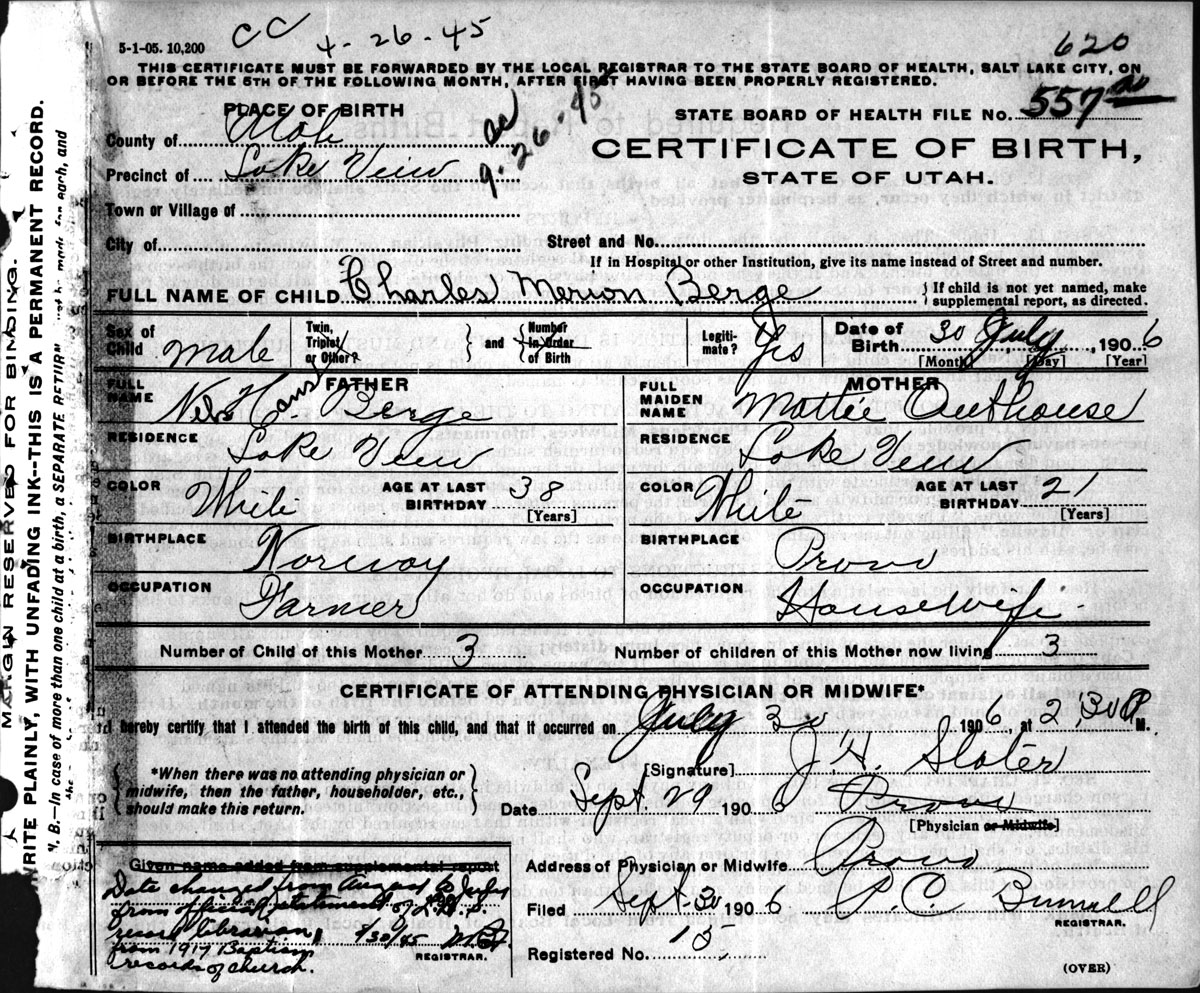 5-1-05. 10,200 CC 4-26-45 620
THIS CERTIFICATE MUST BE FORWARDED BY THE LOCAL REGISTRAR TO THE STATE BOARD OF HEALTH, SALT LAKE CITY, ON
OR BEFORE THE 5TH OF THE FOLLOWING MONTH, AFTER FIRST HAVING BEEN PROPERLY REGISTERED.
PLACE OF BIRTH 9-26-45 STATE BOARD OF HEALTH FILE NO. 557
County of Utah
CERTIFICATE OF BIRTH,
Precinct of Lake View
STATE OF UTAH.
Town or Village of
City of Street and No.
If in Hospital or other Institution, give its name instead of Street and number.
FULL NAME OF CHILD Charles Merion Berge { If child is not yet named, make
supplemental report, as directed.
Sex of Child Male Twin, Triplet, or Other? } and { Number in Order of Birth Legitimate? Yes Date of Birth 30 July, 1906
[Month] [Day] [Year]
FATHER MOTHER
FULL NAME Nels Hans Berge FULL MAIDEN NAME Mattie Outhouse
RESIDENCE Lake View RESIDENCE Lake View
COLOR White AGE AT LAST BIRTHDAY 38 [Years] COLOR White AGE AT LAST BIRTHDAY 21 [Years]
BIRTHPLACE Norway BIRTHPLACE Provo
OCCUPATION Farmer OCCUPATION Housewife
Number of Child of this Mother 3 Number of children of this Mother now living 3
CERTIFICATE OF ATTENDING PHYSICIAN OR MIDWIFE*
I hereby certify that I attended the birth of this child, and that it occurred on July 30 1906, at 2,30 P M.
{ *When there was no attending physician or
midwife, then the father, householder, etc.,
should make this return. }
[Signature] J. H. Slater
Date Sept. 29 1906 Provo
[Physician or Midwife]
Given name added from supplemental report
Date changed from August to July
from official statement of L.D.S.
librarian, 7/30/45
from 1917 Baptism
records of church.
REGISTRAR.
Address of Physician or Midwife Provo
Filed Sept. 30 1906 P. C. Bunnell
REGISTRAR.
Registered No. 15
(OVER)
MARGIN RESERVED FOR BINDING.
WRITE PLAINLY, WITH UNFADING INK--THIS IS A PERMANENT RECORD.
N. B.—In case of more than one child at a birth, a SEPARATE RETURN must be made for each, and